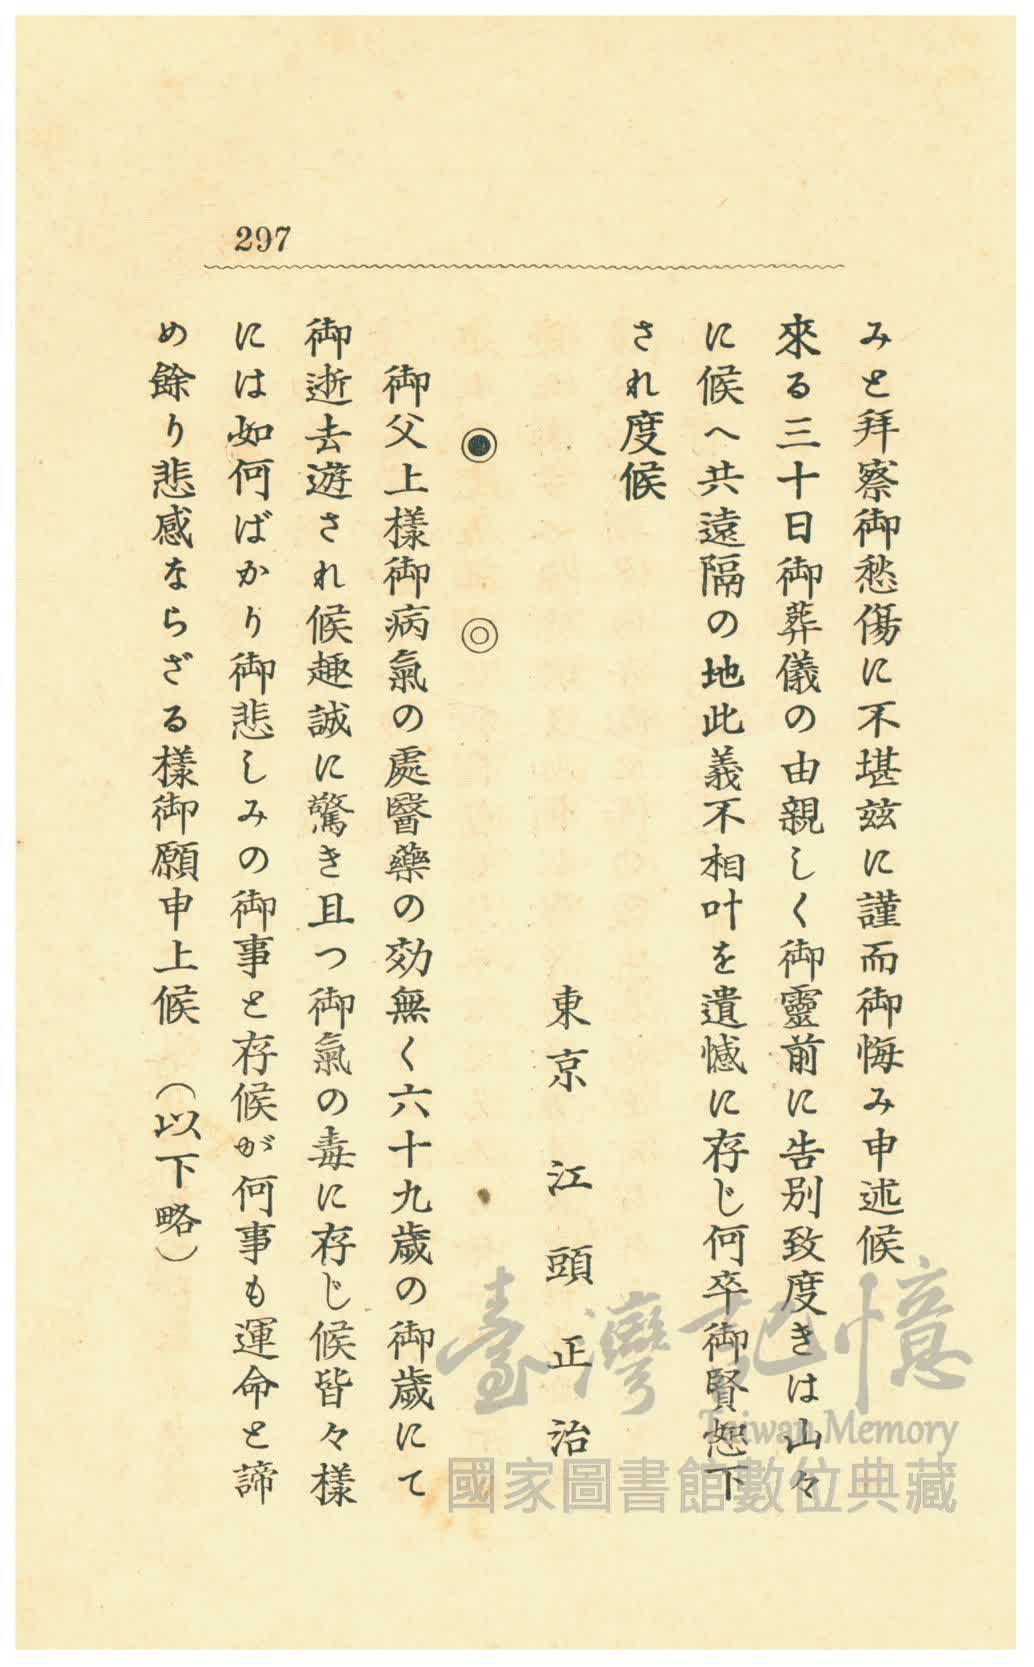 297
みと拜察御愁傷に不堪茲に謹而御悔み申述候
來る三十日御葬儀の由親しく御靈前に告別致度きは山々
に候へ共遠隔の地此義不相叶を遺憾に存じ何卒御賢恕下
され度候
東京 江頭正治
◉ ◎
御父上樣御病氣の處醫藥の効無く六十九歲の御歲にて
御逝去遊され候趣誠に驚き且つ御氣の毒に存じ候皆々樣
には如何ばかり御悲しみの御事と存候が何事も運命と諦
め餘り悲感ならざる樣御願申上候 (以下略)
臺灣記憶
Taiwan Memory
國家圖書館數位典藏